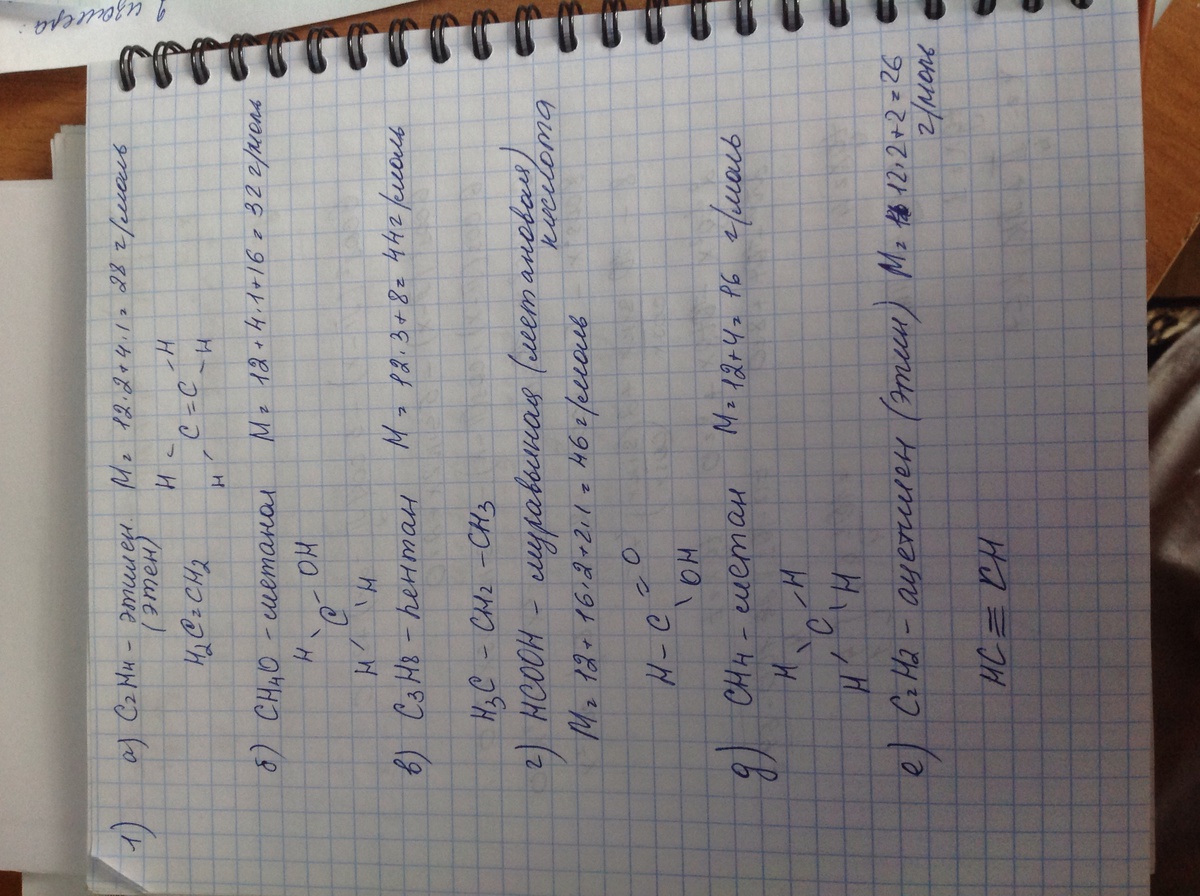 9 изомера:
1) а) C2H4 - этилен. M = 12·2+4·1 = 28 г/моль
(этен)
H H
H2C=CH2 C=C
H H
б) CH4O - метанол M = 12+4·1+16 = 32 г/моль
H OH
C
H H
в) C3H8 - пентан M = 12·3+8 = 44 г/моль
H3C - CH2 - CH3
г) HCOOH - муравьиная (метановая)
кислота
M = 12+16·2+2·1 = 46 г/моль
H - C = O
OH
д) CH4 - метан M = 12+4 = 16 г/моль
H H
C
H H
е) C2H2 - ацетилен (этин) M = 12·2+2 = 26
г/моль
HC ≡ CH